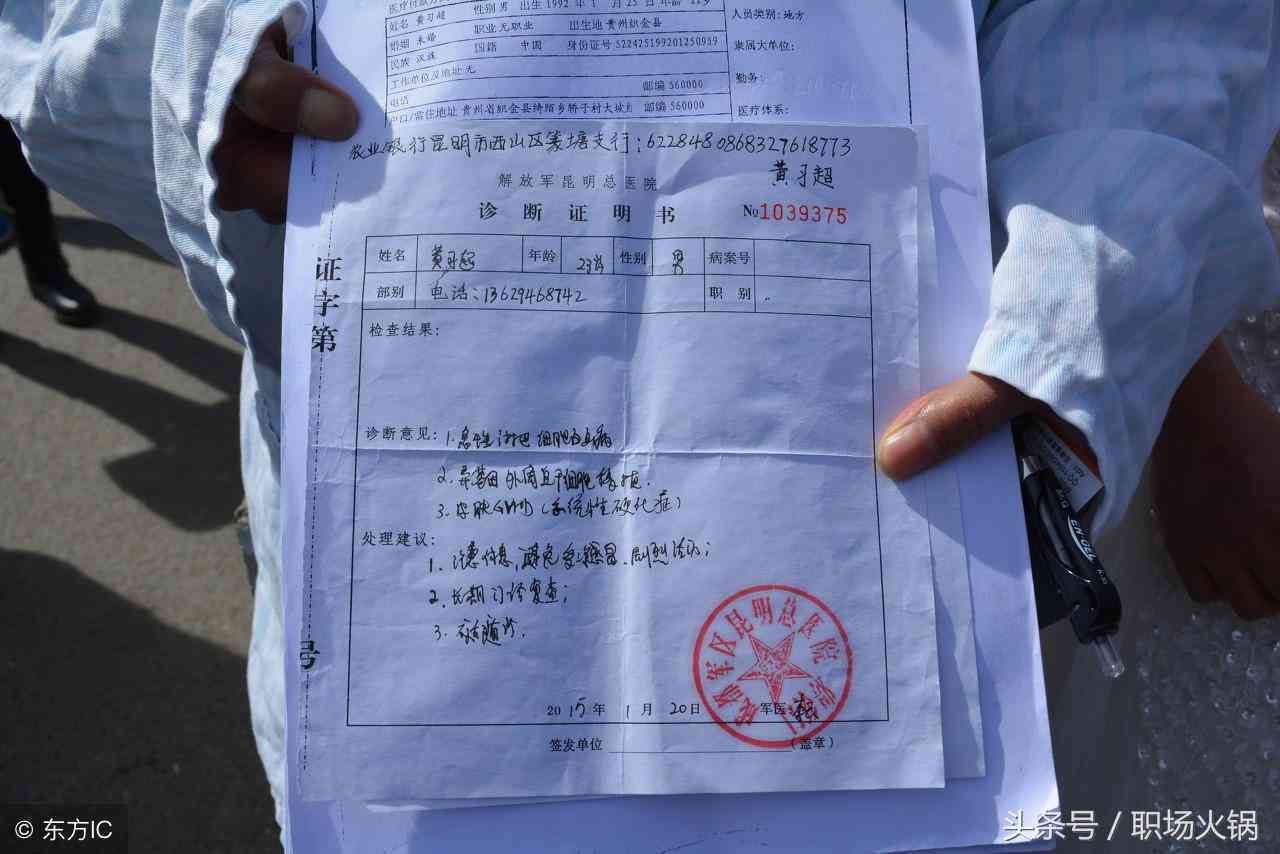 姓名 黄习超 性别 男 出生 1992 年 1 月 25 日 年龄
人员类别:地方
婚姻 未婚 职业 无职业 出生地 贵州织金县
民族 汉族 国籍 中国 身份证号 522425199201250959
隶属大单位:
工作单位及地址 无 邮编 560000
勤务:
电话
户口/常住地址 贵州省织金县绮陌乡桥子村大坡 邮编 560000
医疗体系:
农业银行昆明市西山区篆塘支行:6228480868327618773
黄习超
解放军昆明总医院
诊断证明书 №1039375
姓名 黄习超 年龄 23岁 性别 男 病案号
部别 电话:13629468742 职别
证字第
号
检查结果:
诊断意见: 1. 急性淋巴细胞白血病
2. 异基因外周血干细胞移植.
3. 皮肤GVHD(系统性硬化症)
处理建议:
1. 注意休息,避免受凉感冒、剧烈活动;
2. 长期门诊复查;
3. 随诊.
2015年 1 月 20日 军医
签发单位 (盖章)
成都军区昆明总医院
© 东方IC
头条号 / 职场火锅